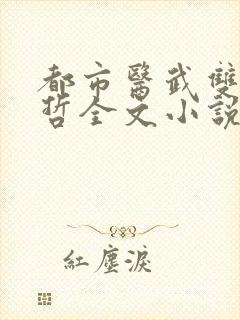 都市醫武雙
哲全文小說
紅塵淚